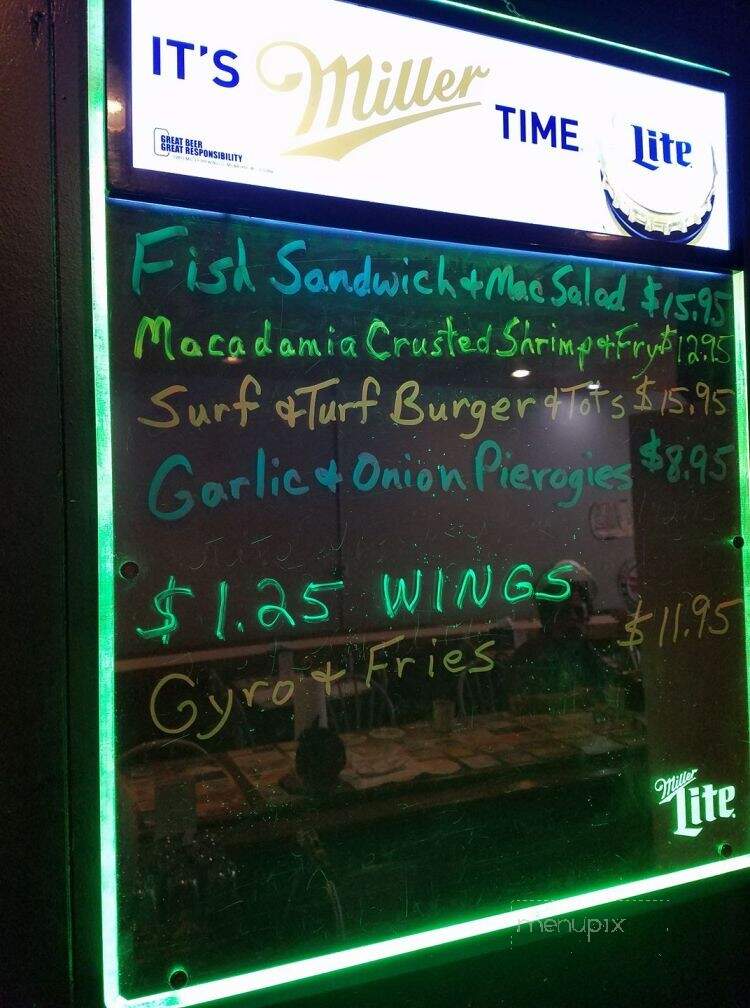 IT'S Miller TIME Lite
GREAT BEER
GREAT RESPONSIBILITY
Fish Sandwich + Mac Salad $15.95
Macadamia Crusted Shrimp + Fry $12.95
Surf + Turf Burger + Tots $15.95
Garlic + Onion Pierogies $8.95
$1.25 WINGS
Gyro + Fries $11.95
Miller
Lite
menupix